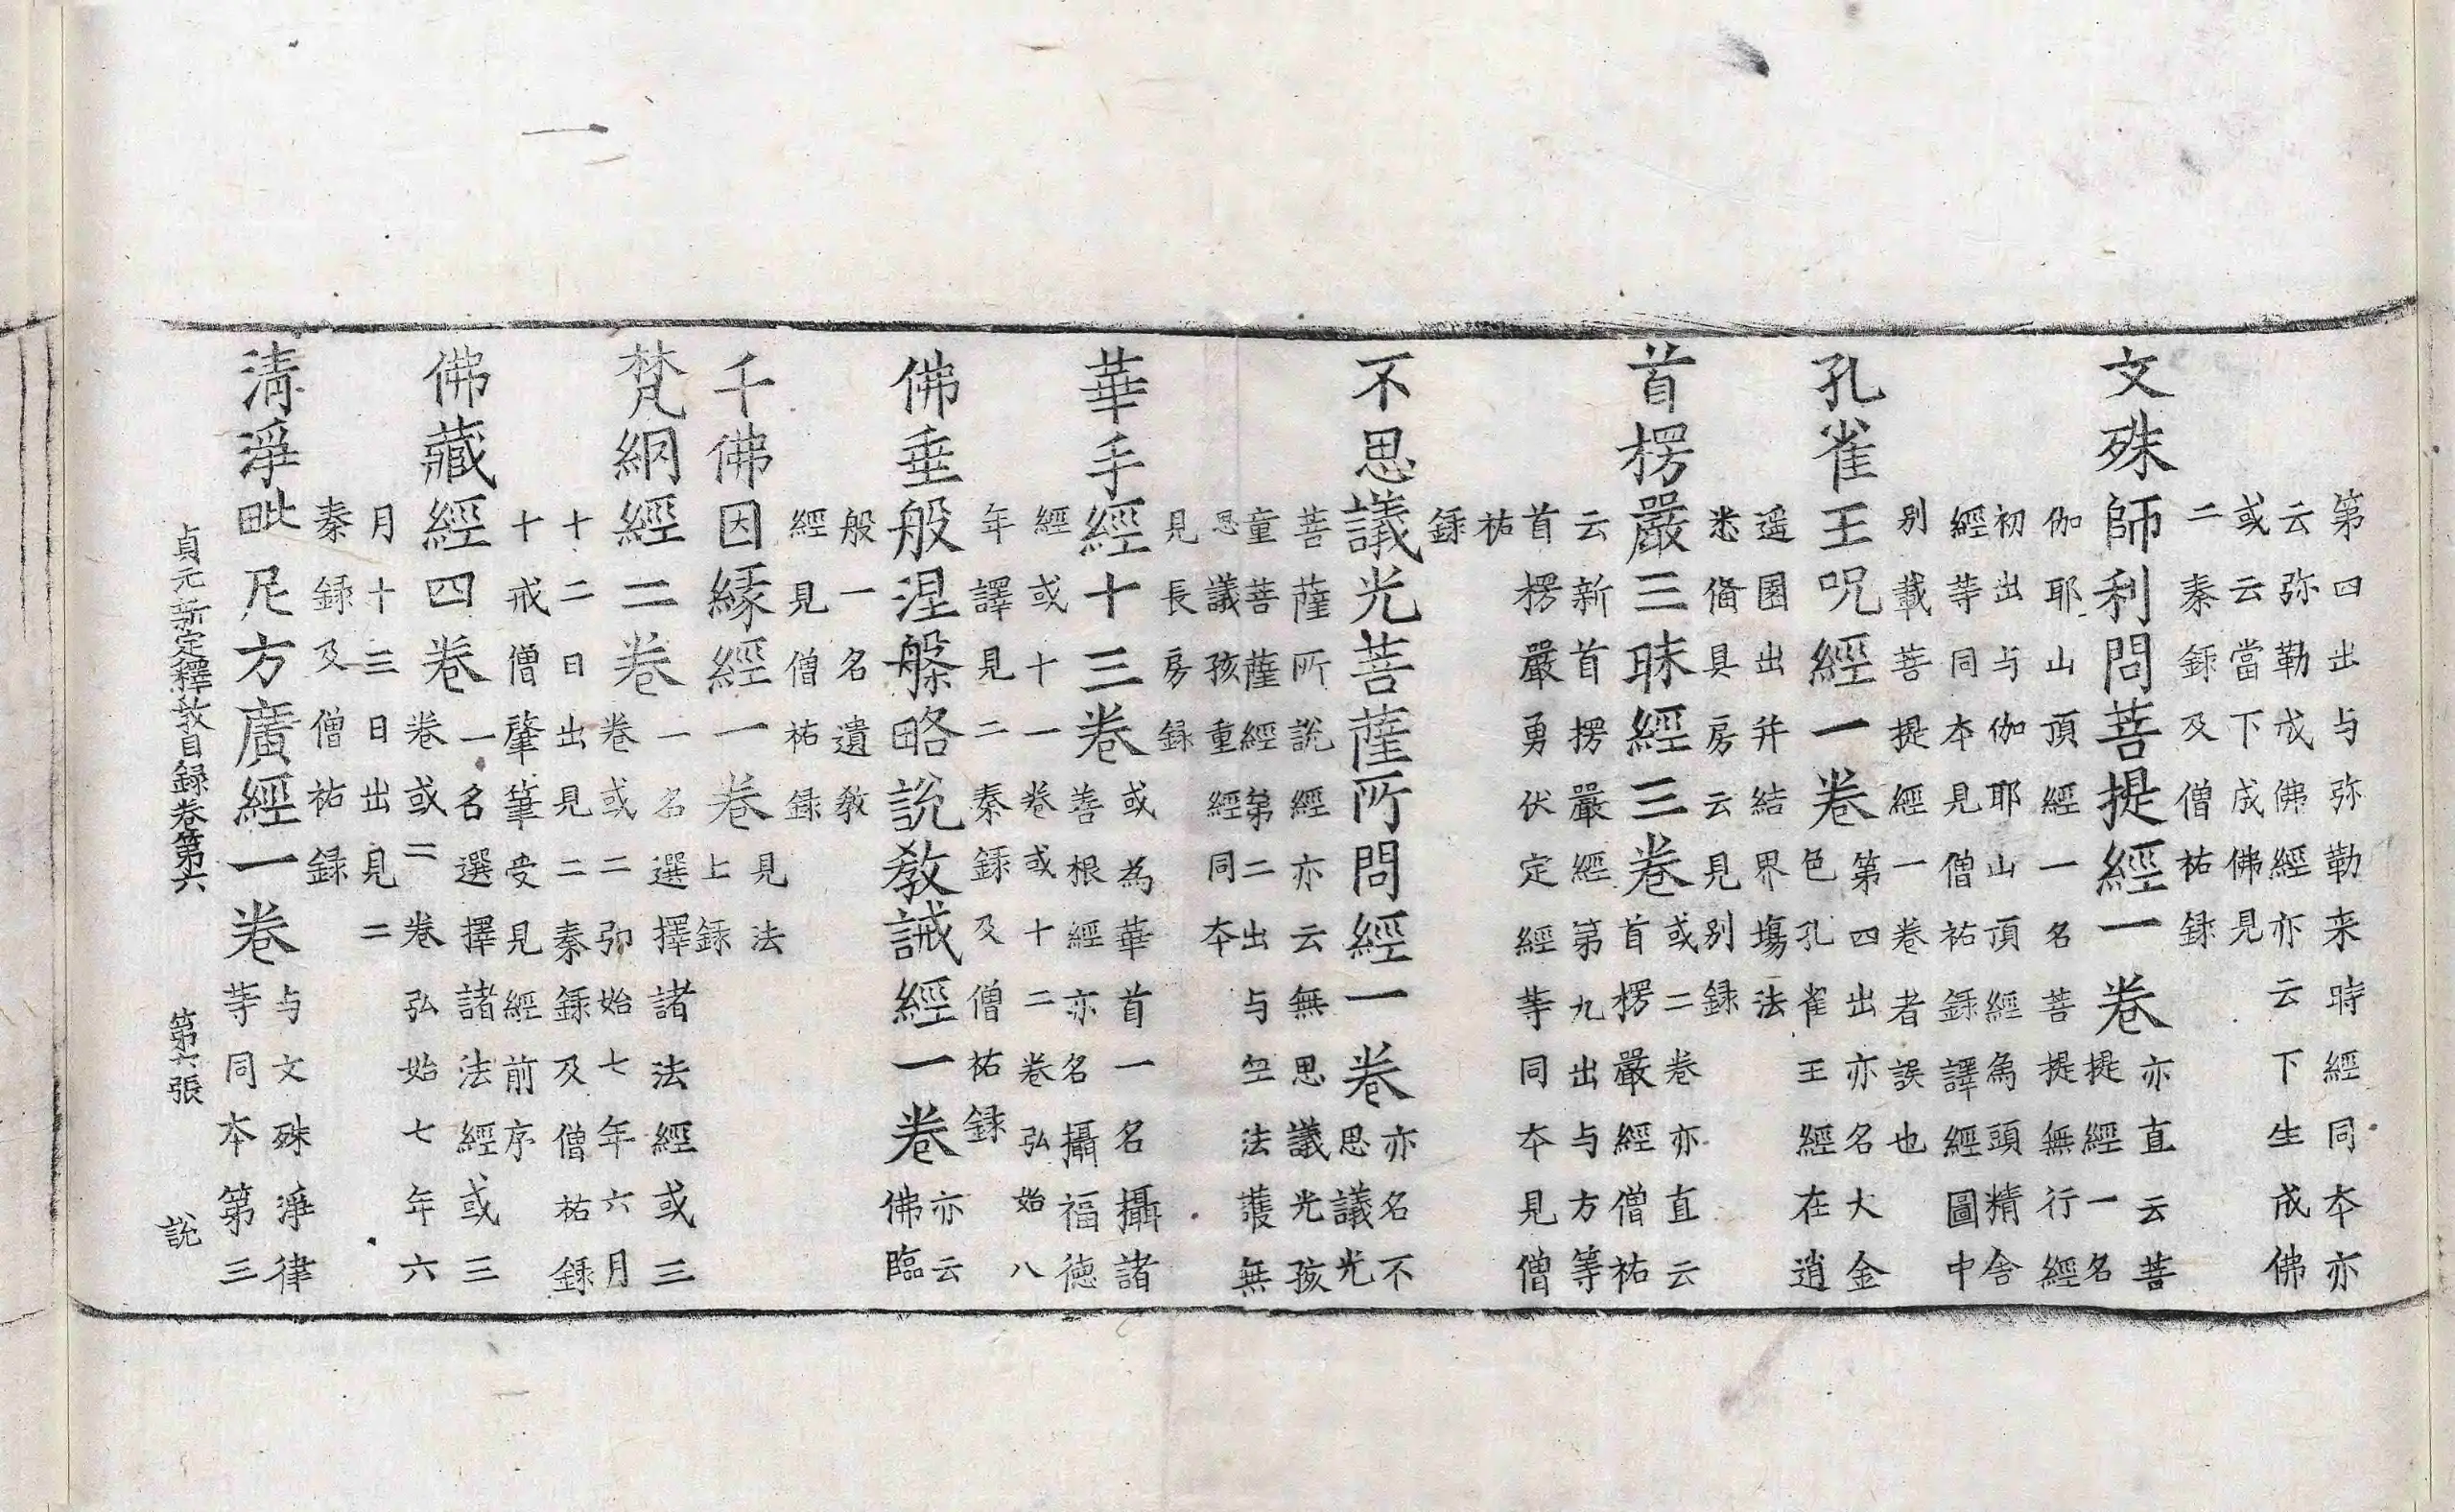 第四出与弥勒来時經同夲亦
云弥勒成佛經亦云下生成佛
或云當下成佛見
二秦録及僧祐録
文殊師利問菩提經一卷亦直云菩
提經一名
伽耶山頂經一名菩提無行經
初出与伽耶山頂經為頭精舍
經等同夲見僧祐録譯經圖中
别載菩提經一卷者誤也
孔雀王呪經一卷第四出亦名大金
色孔雀王經在逍
遥園出并結界塲法
悉俻具房云見别録
首楞嚴三昧經三卷或二卷亦直云
首楞嚴經僧祐
云新首楞嚴經第九出与方等
首楞嚴勇伏定經等同夲見僧
祐
録
不思議光菩薩所問經一卷亦名不
思議光
菩薩所説經亦云無思議光孩
童菩薩經第二出与竺法護無
思議孩重經同夲
見長房録
華手經十三卷或為華首一名攝諸
善根經亦名攝福德
經或十一卷或十二卷弘始八
年譯見二秦録及僧祐録
佛垂般涅槃略說教誡經一卷亦云
佛臨
般一名遺教
經見僧祐録
千佛因緣經一卷見法
上録
梵網經二卷一名選擇諸法經或三
卷或二弥始七年六月
十二日出見二秦録及僧祐録
十戒僧肇筆受見經前序
佛藏經四卷一名選擇諸法經或三
卷或二卷弘始七年六
月十三日出見二
秦録及僧祐録
清淨毗尼方廣經一卷与文殊淨律
等同夲第三
貞元新定釋教目録卷第六 第六張 說